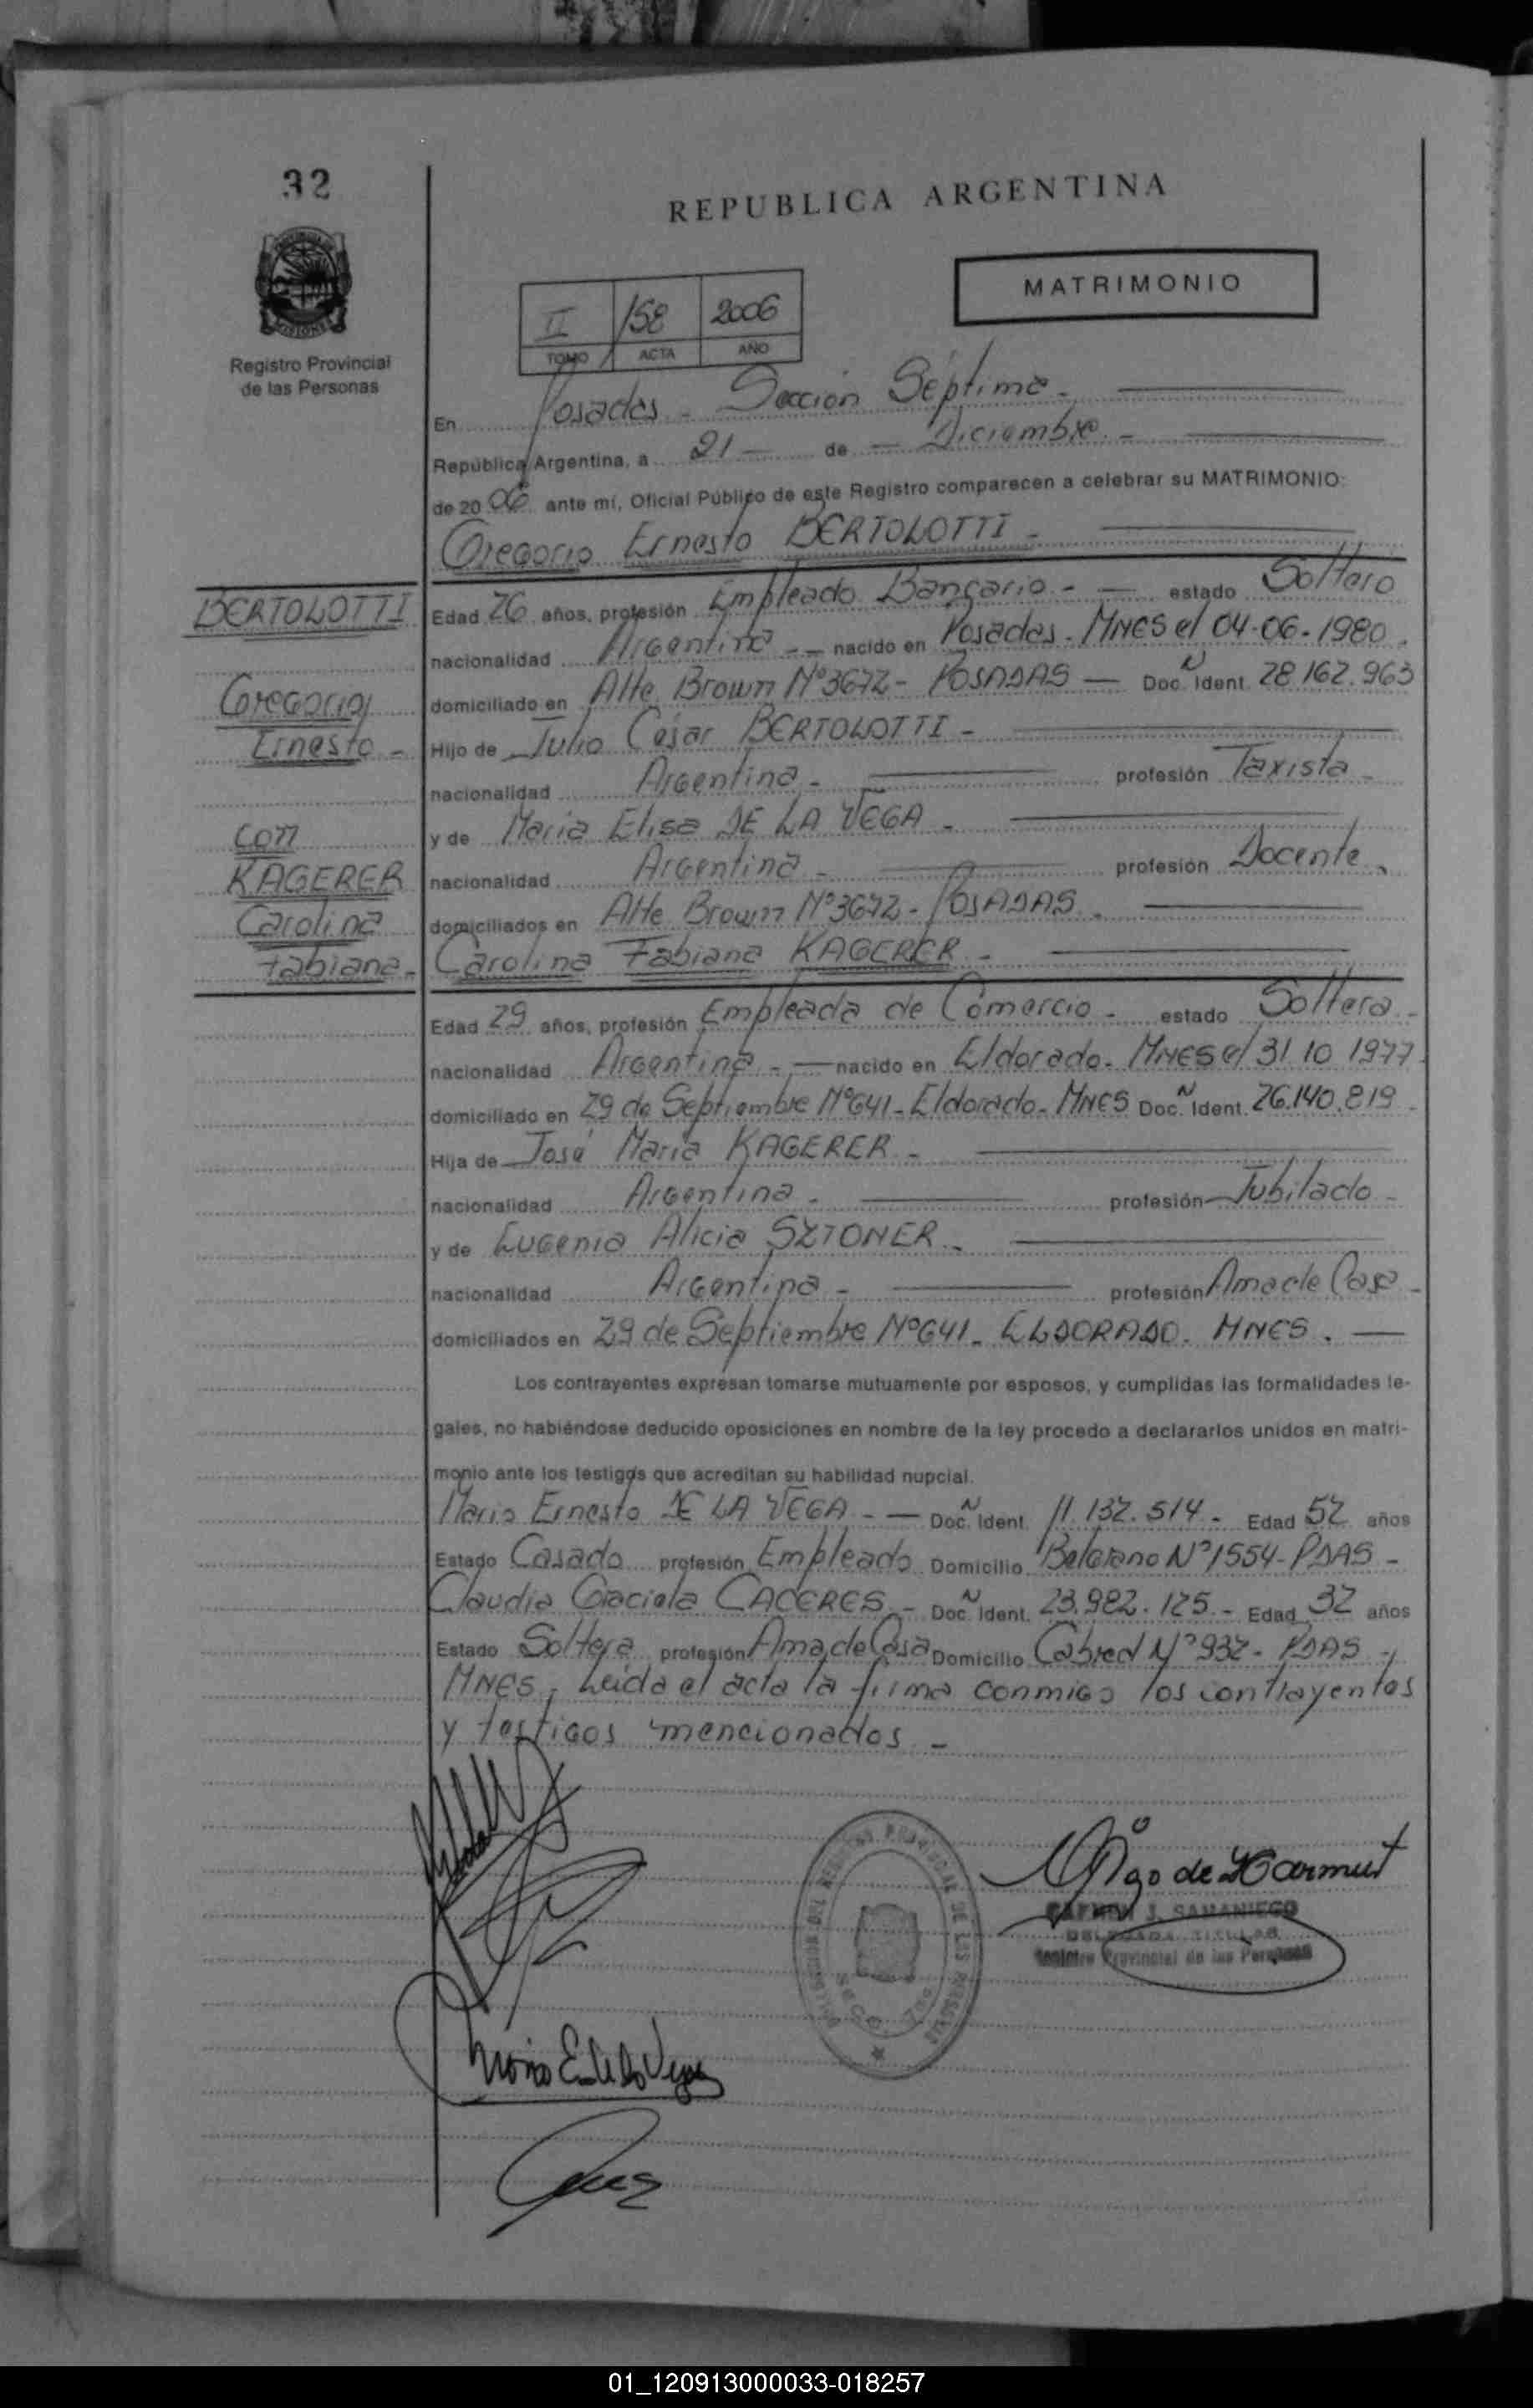 32
REPUBLICA ARGENTINA
MATRIMONIO
II 158 2006
TOMO ACTA AÑO
Registro Provincial
de las Personas
En Posadas - Sección Séptima -
República Argentina, a 21 — de — Diciembre -
de 20 06 ante mí, Oficial Público de este Registro comparecen a celebrar su MATRIMONIO:
Gregorio Ernesto BERTOLOTTI -
BERTOLOTTI
Gregorio
Ernesto -
con
KAGERER
Carolina
Fabiana -
Edad 26 años, profesión Empleado Bancario - — estado Soltero
nacionalidad Argentina - — nacido en Posadas - MNES el 04-06-1980.
domiciliado en Alte. Brown Nº 3672 - POSADAS — Doc. N Ident. 28.162.963
Hijo de Julio César BERTOLOTTI -
nacionalidad Argentina - profesión Taxista -
y de María Elisa DE LA VEGA -
nacionalidad Argentina - profesión Docente -
domiciliados en Alte Brown Nº 3672 - POSADAS -
Carolina Fabiana KAGERER -
Edad 29 años, profesión Empleada de Comercio - estado Soltera -
nacionalidad Argentina - — nacido en Eldorado - MNES el 31.10.1977.
domiciliado en 29 de Septiembre Nº 641 - Eldorado - MNES Doc. N Ident. 26.140.819 -
Hija de José María KAGERER -
nacionalidad Argentina - profesión Jubilado -
y de Eugenia Alicia SZTONER -
nacionalidad Argentina - profesión Ama de Casa -
domiciliados en 29 de Septiembre Nº 641 - ELDORADO. MNES. —
Los contrayentes expresan tomarse mutuamente por esposos, y cumplidas las formalidades le-
gales, no habiéndose deducido oposiciones en nombre de la ley procedo a declararlos unidos en matri-
monio ante los testigos que acreditan su habilidad nupcial.
Mario Ernesto DE LA VEGA - — Doc. N Ident. 11.132.514 - Edad 52 años
Estado Casado profesión Empleado Domicilio Belgrano Nº 1554 - PDAS -
Claudia Graciela CACERES - Doc. N Ident. 23.982.125 - Edad 32 años
Estado Soltera profesión Ama de Casa Domicilio Cabred Nº 932 - PDAS -
MNES, Leída el acta la firma conmigo los contrayentes
y testigos mencionados -
CARMEN J. SAMANIEGO
DELEGADA TITULAR
Registro Provincial de las Personas
01_120913000033-018257